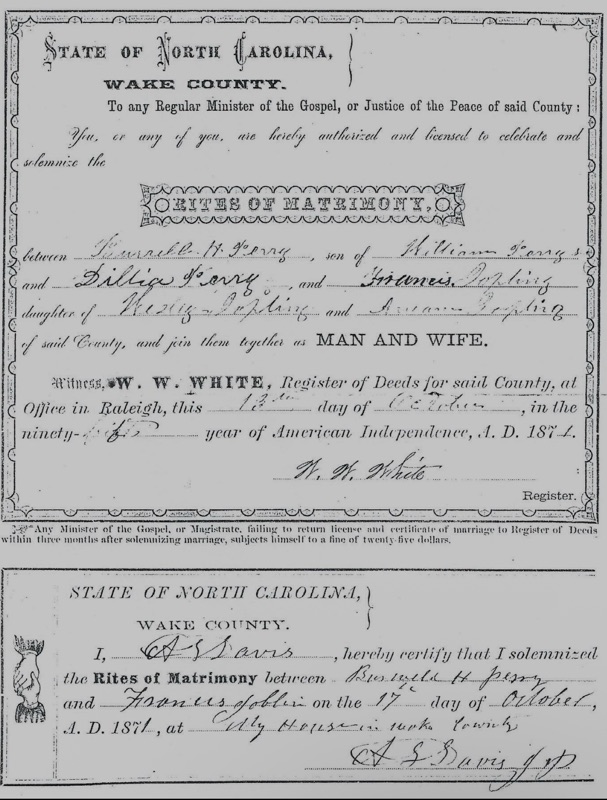 STATE OF NORTH CAROLINA,
WAKE COUNTY.
To any Regular Minister of the Gospel, or Justice of the Peace of said County:
You, or any of you, are hereby authorized and licensed to celebrate and
solemnize the
RITES OF MATRIMONY,
between Burrell H Perry, son of William Perry
and Dillia Perry, and Francis Jopling
daughter of Wesley Jopling and Jopling
of said County, and join them together as MAN AND WIFE.
Witness, W. W. WHITE, Register of Deeds for said County, at
Office in Raleigh, this 13th day of October, in the
ninety- year of American Independence, A. D. 1871.
W. W. White
Register.
Any Minister of the Gospel, or Magistrate, failing to return license and certificate of marriage to Register of Deeds
within three months after solemnizing marriage, subjects himself to a fine of twenty-five dollars.
STATE OF NORTH CAROLINA,
WAKE COUNTY.
I, A G Davis, hereby certify that I solemnized
the Rites of Matrimony between H perry
and Francis Joblin on the 17 day of October,
A. D. 1871, at My House in wake County
A G Davis J P